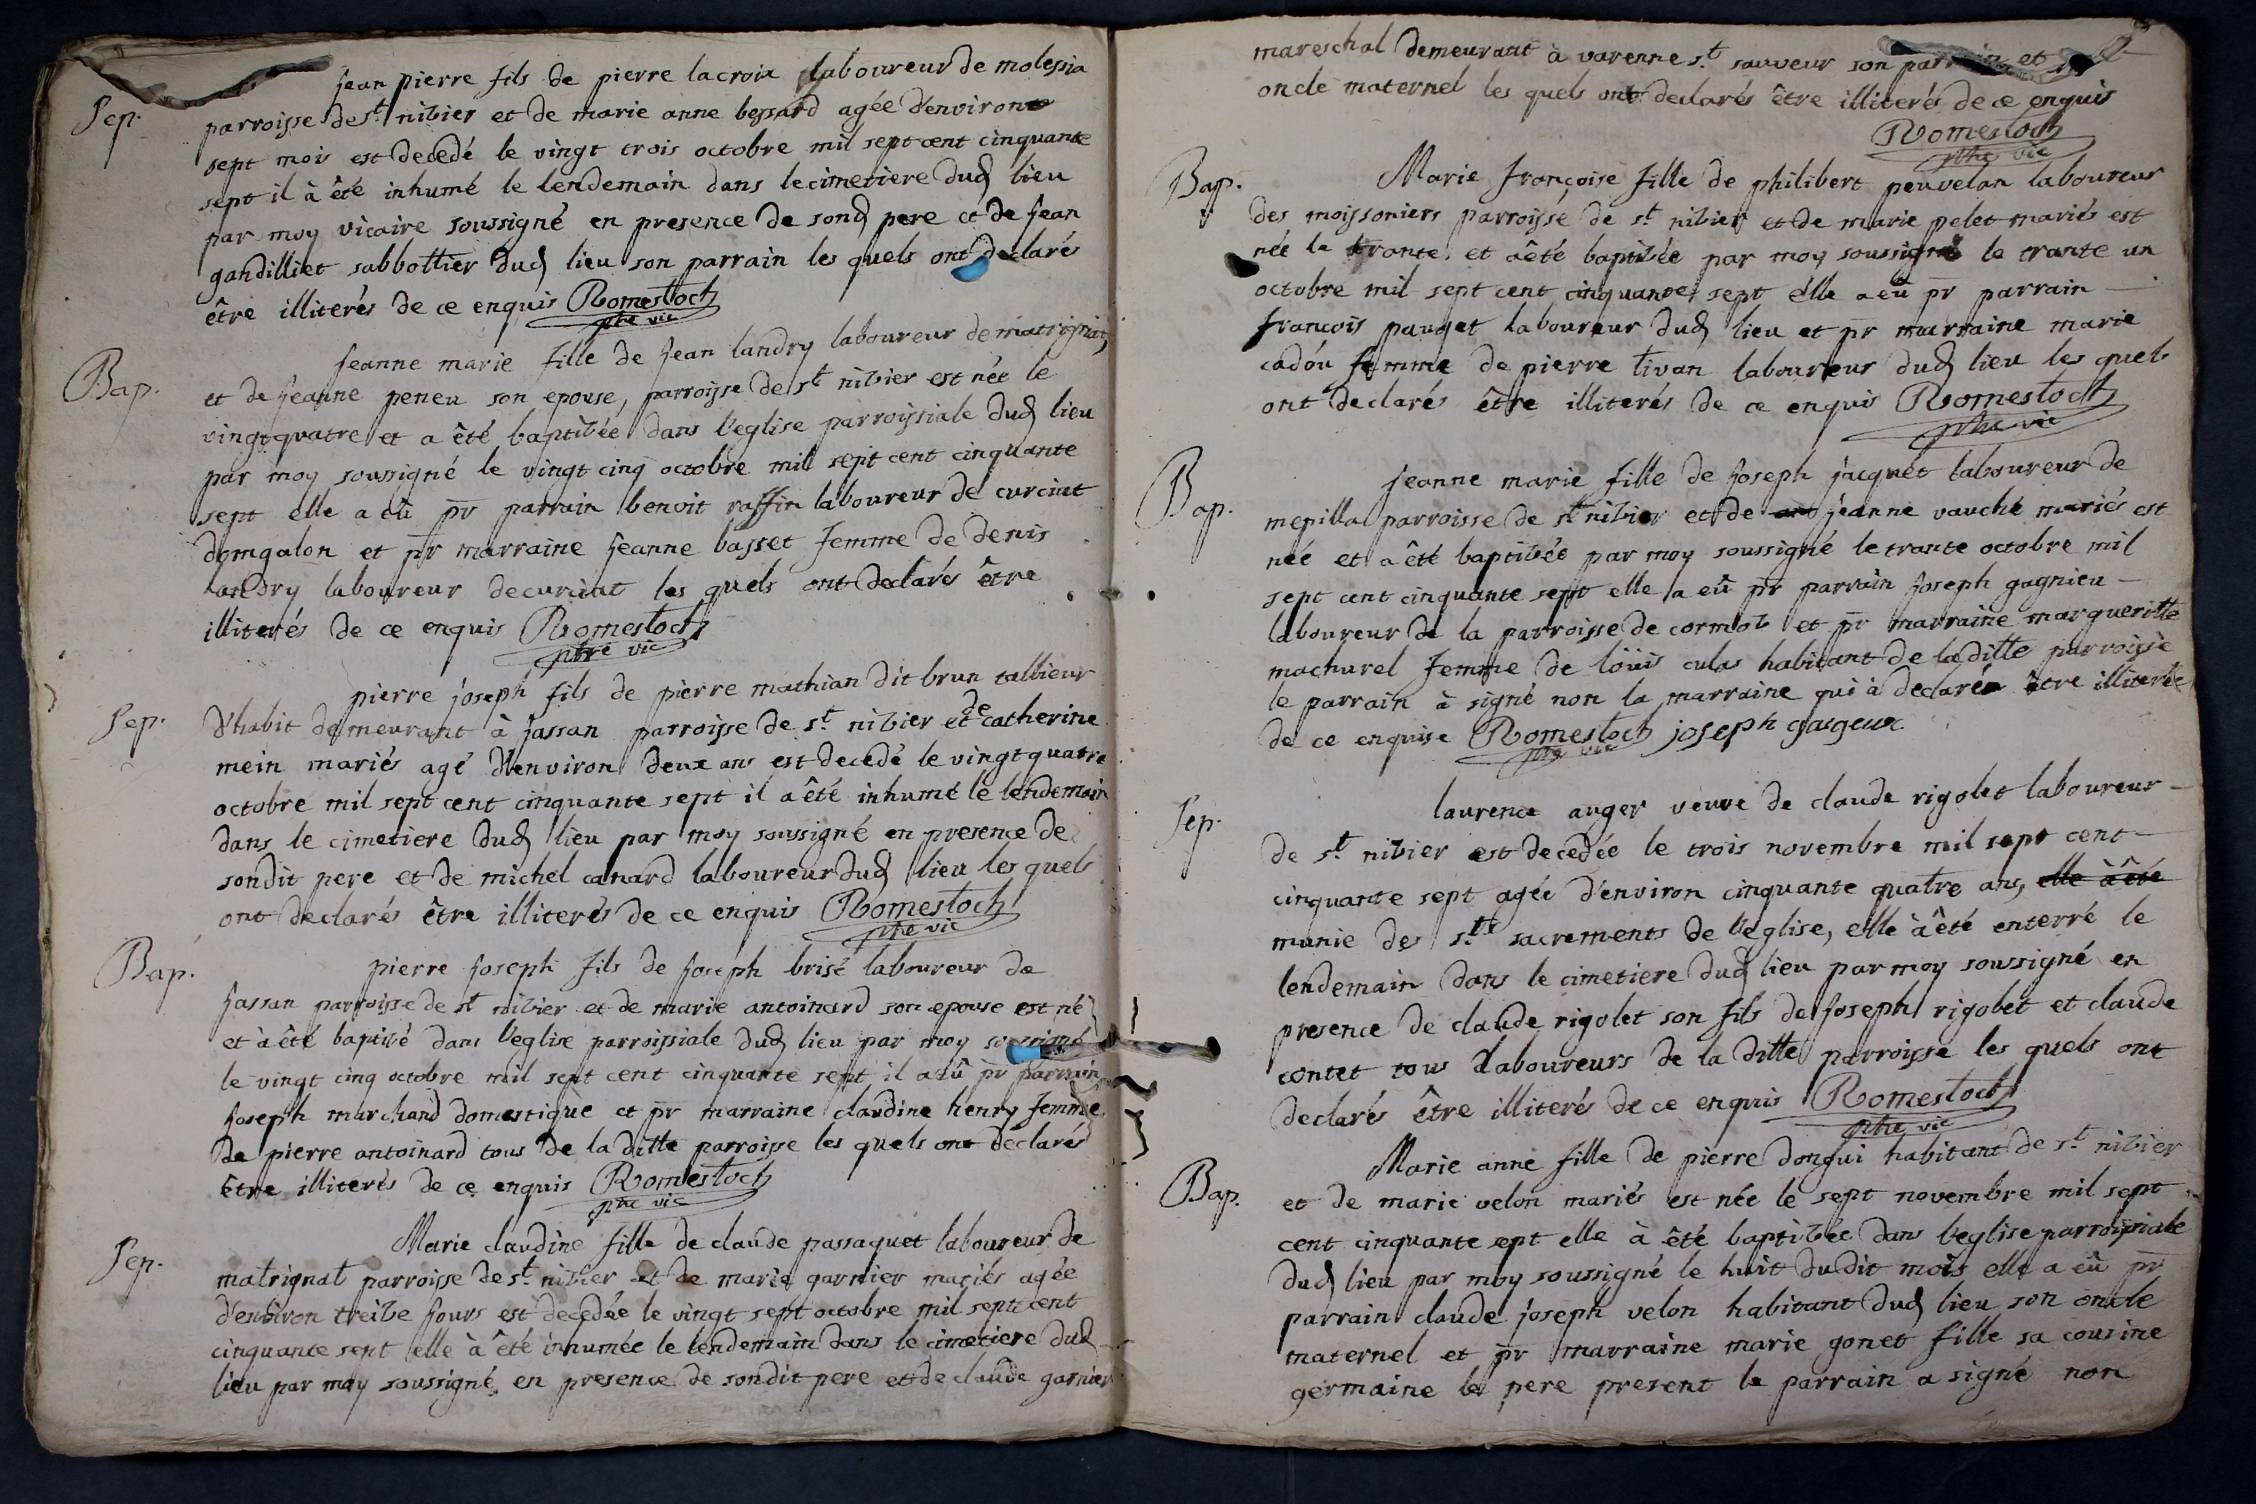 jean pierre fils de pierre lacroix laboureur de molessia
Sep. parroisse de st nizier et de marie anne bessard agée d'environ
sept mois est decedé le vingt trois octobre mil sept cent cinquante
sept il à été inhumé le lendemain dans le cimetiere dud lieu
par moy vicaire soussigné en presence de sond pere et de jean
gandilliet sabbottier dud lieu son parrain les quels ont declarés
être illiterés de ce enquis Romestoch
ptre vic
jeanne marie fille de jean landry laboureur de matrignat,
Bap. et de jeanne peneu son epouse, parroisse de st nizier est née le
vingt quatre et a été baptizée dans l'eglise parroissiale dud lieu
par moy soussigné le vingt cinq octobre mil sept cent cinquante
sept elle a eû pr parrain benoit raffin laboureur de curciat
domgalon et pr marraine jeanne basset femme de denis
landry laboureur de curciat les quels ont declarés être
illiterés de ce enquis Romestoch
ptre vic
pierre joseph fils de pierre mathian dit brun tallieur
Sep. d'habit demeurant à jassan parroisse de st nizier et de catherine
mein mariés agé d'environ deux ans est decedé le vingt quatre
octobre mil sept cent cinquante sept il a été inhumé le lendemain
dans le cimetiere dud lieu par moy soussigné en presence de
sondit pere et de michel canard laboureur dud lieu les quels
ont declarés être illiterés de ce enquis Romestoch
ptre vic
Bap. pierre joseph fils de joseph brisé laboureur de
jassan parroisse de st nizier et de marie antoinard son epouse est né
et à été baptizé dans l'eglise parroissiale dud lieu par moy soussigné
le vingt cinq octobre mil sept cent cinquante sept il a eû pr parrain
joseph marchand domestique et pr marraine claudine henry femme
de pierre antoinard tous de la ditte parroisse les quels ont declarés
être illiterés de ce enquis Romestoch
ptre vic
Marie claudine fille de claude passaquet laboureur de
Sep. matrignat parroisse de st nizier et de marie garnier mariés agée
d'environ treize jours est decedée le vingt sept octobre mil sept cent
cinquante sept elle à été inhumée le lendemain dans le cimetiere dud
lieu par moy soussigné en presence de sondit pere et de claude garnier
mareschal demeurant à varenne st sauveur son parrain et
oncle maternel les quels ont declarés être illiterés de ce enquis
Romestoch
ptre vic
Bap. Marie françoise fille de philibert peuvelan laboureur
des moissoniers parroisse de st nizier et de marie pelet mariés est
née le trante et a été baptizée par moy soussigné le trante un
octobre mil sept cent cinquante sept elle a eû pr parrain
françois pauget laboureur dud lieu et pr marraine marie
cadóu femme de pierre tivan laboureur dud lieu les quels
ont declarés être illiterés de ce enquis Romestoch
ptre vic
jeanne marie fille de joseph jacquet laboureur de
Bap. mepilla parroisse de st nizier et de jeanne vauché mariés est
née et a été baptizée par moy soussigné le trante octobre mil
sept cent cinquante sept elle a eû pr parrain joseph gagnieu
laboureur de la parroisse de cormoz et pr marraine margueritte
machurel femme de loüis culas habitant de la ditte parroisse
le parrain à signé non la marraine qui à declaré être illiterée
de ce enquise Romestoch joseph gaigeux
ptre vic
laurence auger veuve de claude rigolet laboureur
Sep. de st nizier est decedée le trois novembre mil sept cent
cinquante sept agée d'environ cinquante quatre ans, elle à été
munie des sts sacrements de l'eglise, elle à été enterré le
lendemain dans le cimetiere dud lieu par moy soussigné en
presence de claude rigolet son fils de joseph rigolet et claude
contet tous laboureurs de la ditte parroisse les quels ont
declarés être illiterés de ce enquis Romestoch
ptre vic
Marie anne fille de pierre donjui habitant de st nizier
Bap. et de marie velon mariés est née le sept novembre mil sept
cent cinquante sept elle à été baptizée dans l'eglise parroissiale
dud lieu par moy soussigné le huit dudit mois elle a eû pr
parrain claude joseph velon habitant dud lieu son oncle
maternel et pr marraine marie gonet fille sa cousine
germaine le pere present le parrain a signé non